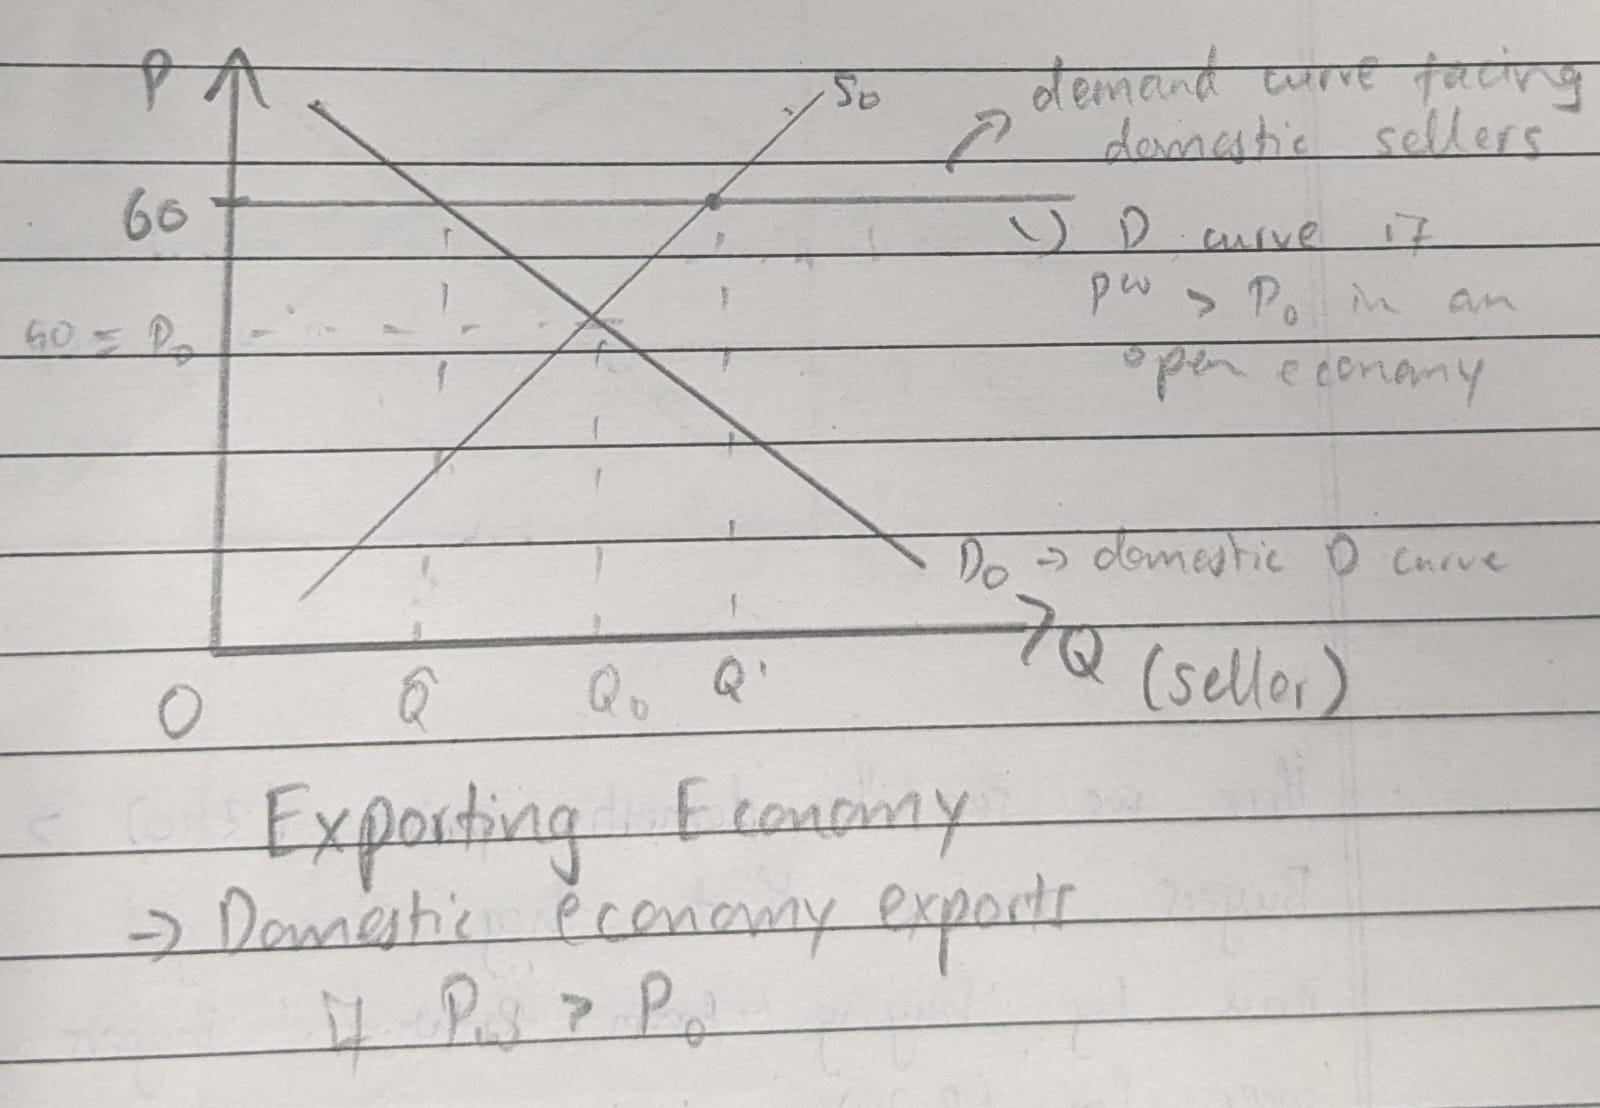 P
S₀
demand curve facing
domestic sellers
60
D curve if
pʷ > P₀ in an
= P₀
open economy
D₀ → domestic D curve
Q (seller)
O
Q₀
Q'
Exporting Economy
→ Domestic economy exports
if P_w > P₀